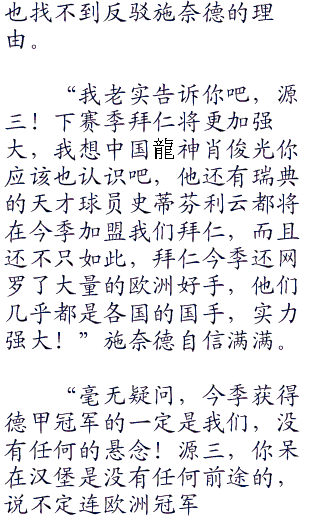 也找不到反驳施奈德的理
由。
“我老实告诉你吧，源
三！下赛季拜仁将更加强
大，我想中国龍神肖俊光你
应该也认识吧，他还有瑞典
的天才球员史蒂芬利云都将
在今季加盟我们拜仁，而且
还不只如此，拜仁今季还网
罗了大量的欧洲好手，他们
几乎都是各国的国手，实力
强大！”施奈德自信满满。
“毫无疑问，今季获得
德甲冠军的一定是我们，没
有任何的悬念！源三，你呆
在汉堡是没有任何前途的，
说不定连欧洲冠军